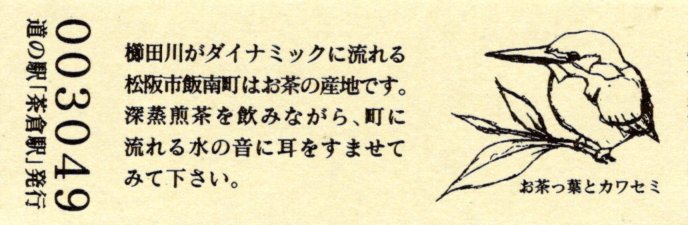 003049
道の駅「茶倉駅」発行
櫛田川がダイナミックに流れる
松阪市飯南町はお茶の産地です。
深蒸煎茶を飲みながら、町に
流れる水の音に耳をすませて
みて下さい。
お茶っ葉とカワセミ